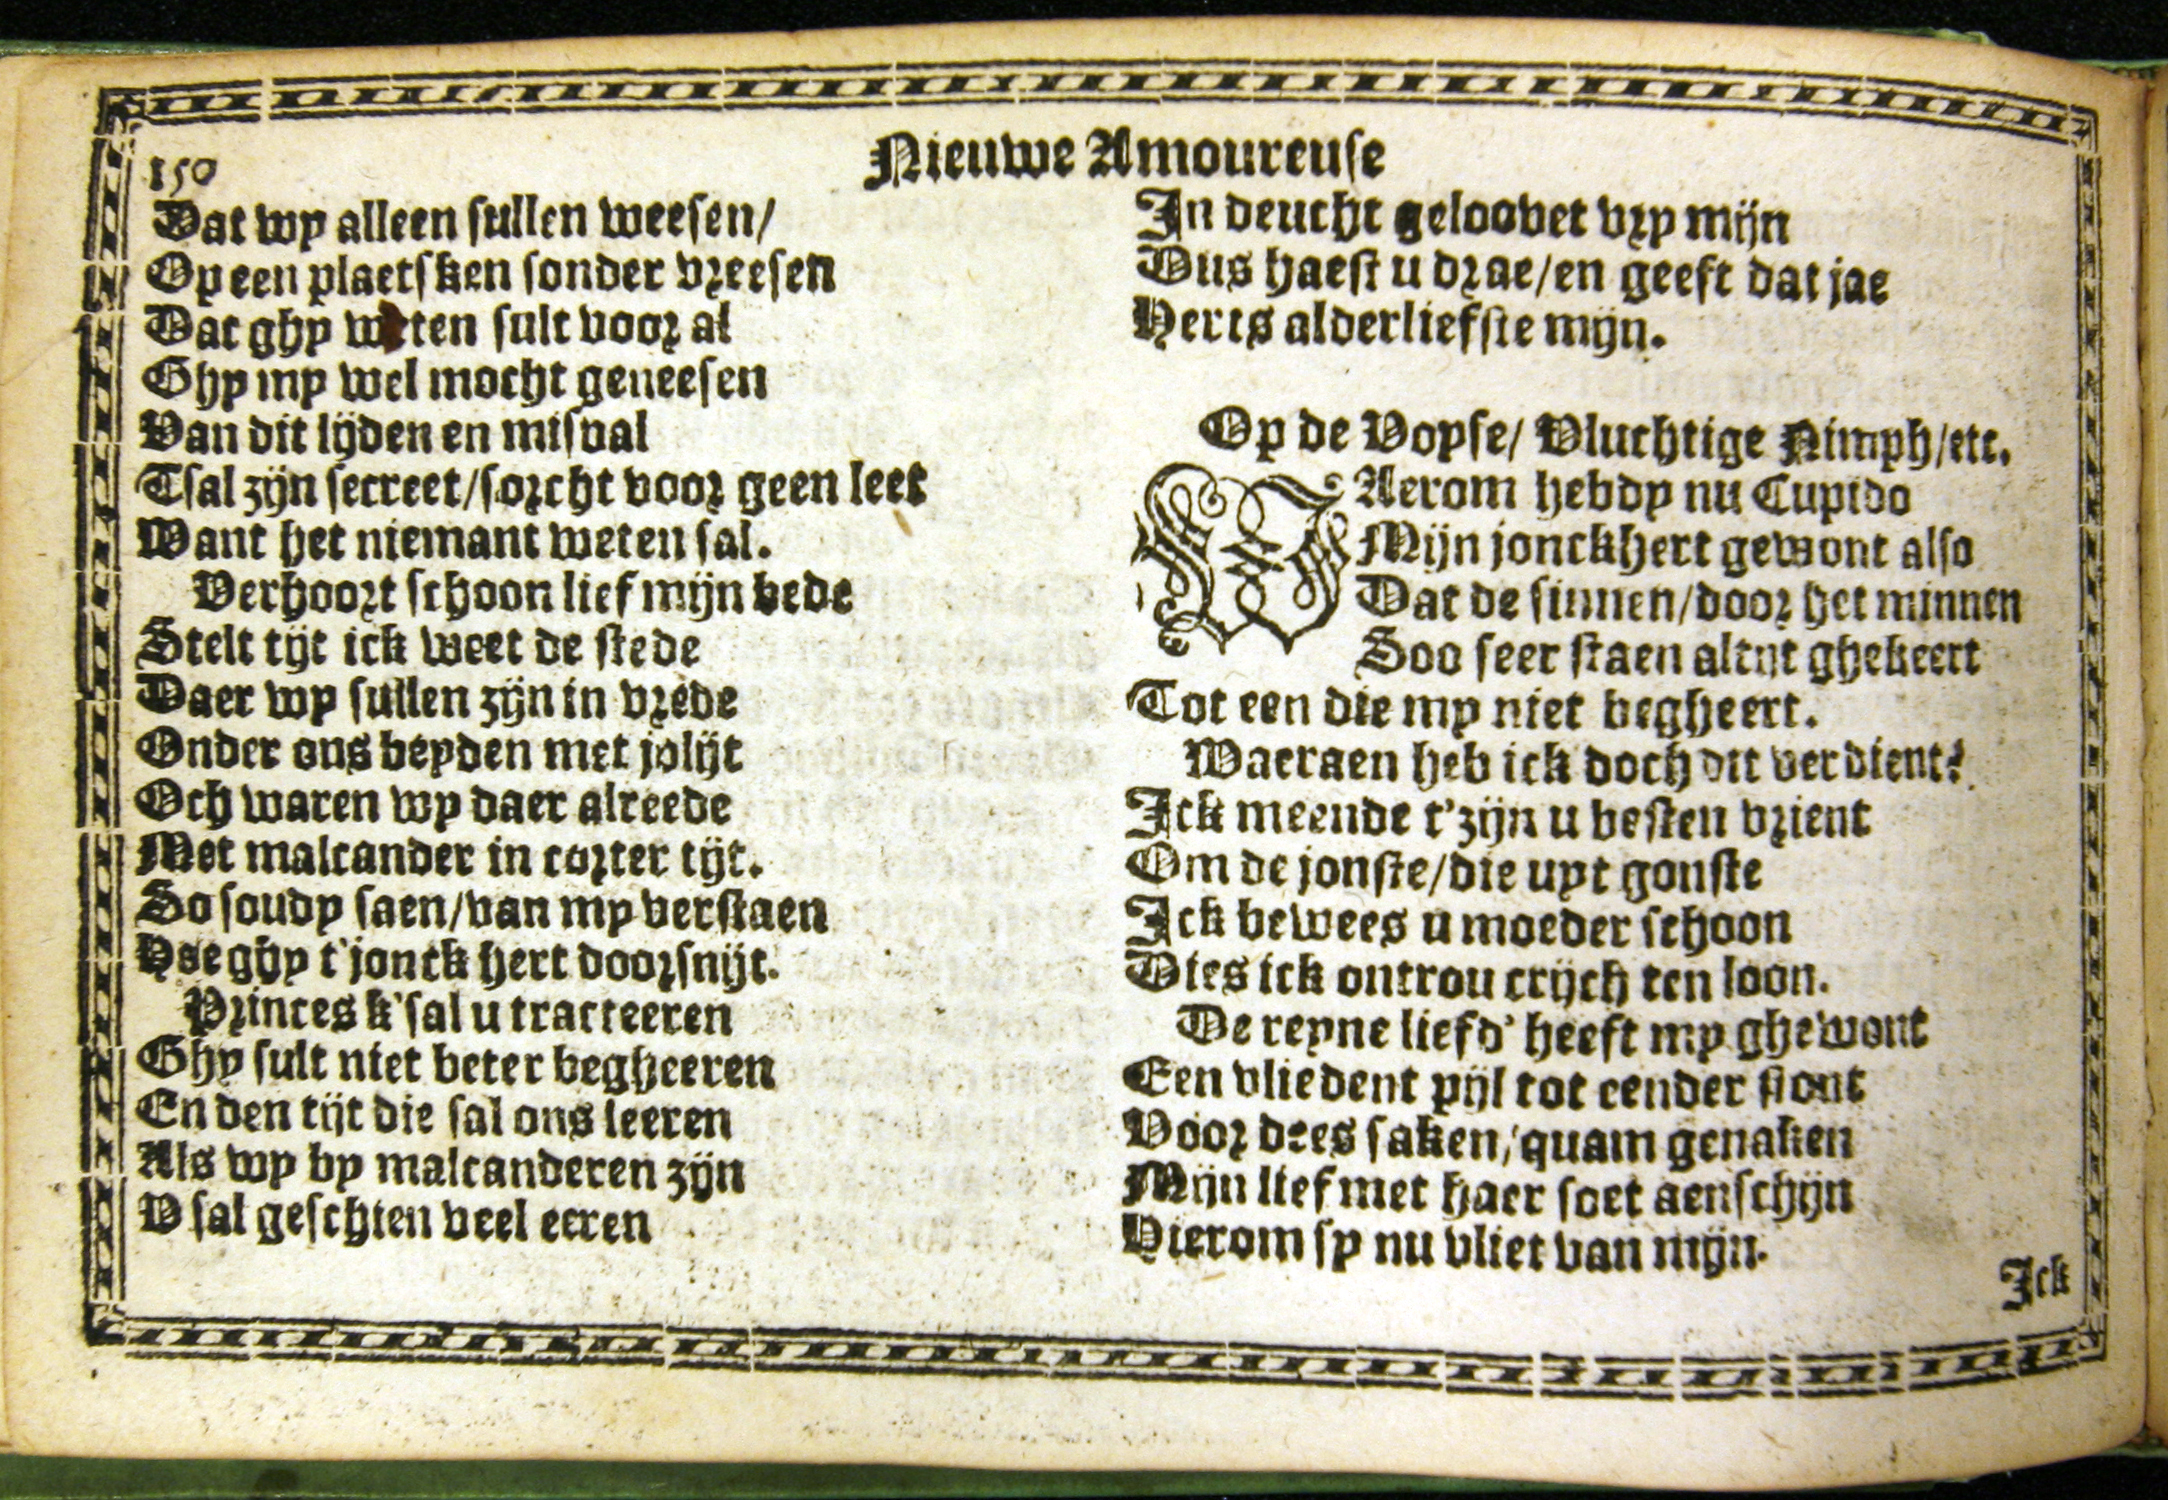 150
Nieuwe Amoureuse
Dat wy alleen sullen weesen/
Op een plaetsken sonder vreesen
Dat ghy weten sult voor al
Ghy my wel mocht geneesen
Van dit lijden en misval
Tsal zijn secreet/sorcht voor geen leet
Want het niemant weten sal.
Verhoort schoon lief mijn bede
Stelt tijt ick weet de stede
Daer wy sullen zijn in vrede
Onder ons beyden met jolijt
Och waren wy daer alreede
Met malcander in corter tijt.
So soudy saen/van my verstaen
Hoe ghy t'jonck hert doorsnijt.
Princes k'sal u tracteeren
Ghy sult niet beter begheeren
En den tijt die sal ons leeren
Als wy by malcanderen zijn
V sal geschien veel eeren
In deucht geloovet vry mijn
Dus haest u drae/en geeft dat jae
Herts alderliefste mijn.
Op de Voyse/ Vluchtige Nimph/etc.
WAerom hebdy nu Cupido
Mijn jonckhert gewont also
Dat de sinnen/door het minnen
Soo seer staen altijt ghekeert
Tot een die my niet begheert.
Waeraen heb ick doch dit verdient?
Ick meende t'zijn u besten vrient
Om de jonste/die uyt gonste
Ick bewees u moeder schoon
Dies ick ontrou crijch ten loon.
De reyne liefd' heeft my ghewont
Een vliedent pijl tot eender stont
Voor dees saken/quam genaken
Mijn lief met haer soet aenschijn
Hierom sy nu vliet van mijn.
Ick